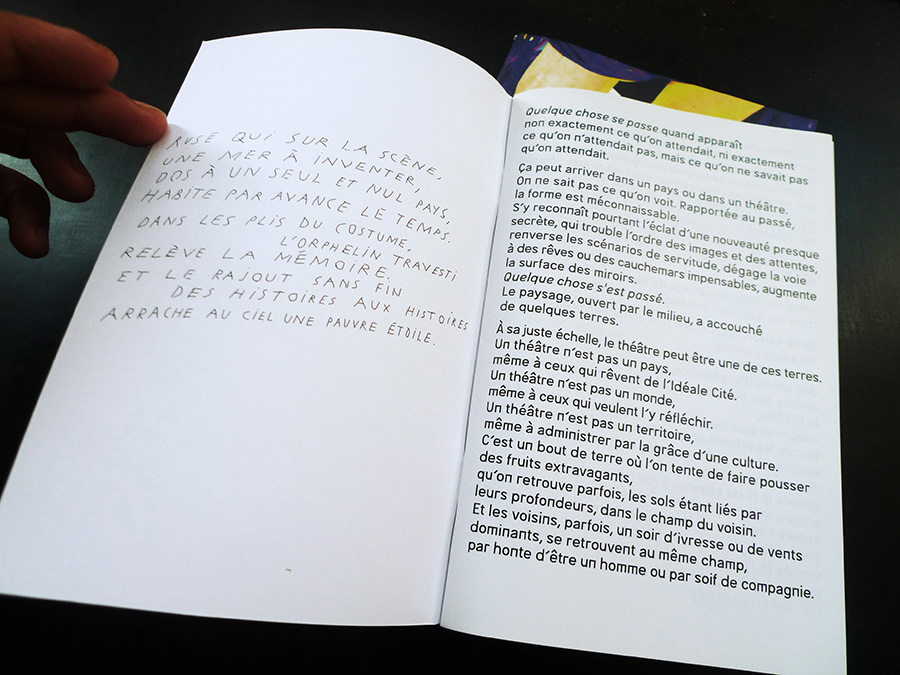 RUSE QUI SUR LA SCÈNE,
UNE MER À INVENTER,
DOS À UN SEUL ET NUL PAYS,
HABITE PAR AVANCE LE TEMPS.
DANS LES PLIS DU COSTUME,
L'ORPHELIN TRAVESTI
RELÈVE LA MÉMOIRE.
ET LE RAJOUT SANS FIN
DES HISTOIRES AUX HISTOIRES
ARRACHE AU CIEL UNE PAUVRE ÉTOILE.
Quelque chose se passe quand apparaît
non exactement ce qu'on attendait, ni exactement
ce qu'on n'attendait pas, mais ce qu'on ne savait pas
qu'on attendait.
Ça peut arriver dans un pays ou dans un théâtre.
On ne sait pas ce qu'on voit. Rapportée au passé,
la forme est méconnaissable.
S'y reconnaît pourtant l'éclat d'une nouveauté presque
secrète, qui trouble l'ordre des images et des attentes,
renverse les scénarios de servitude, dégage la voie
à des rêves ou des cauchemars impensables, augmente
la surface des miroirs.
Quelque chose s'est passé.
Le paysage, ouvert par le milieu, a accouché
de quelques terres.
À sa juste échelle, le théâtre peut être une de ces terres.
Un théâtre n'est pas un pays,
même à ceux qui rêvent de l'Idéale Cité.
Un théâtre n'est pas un monde,
même à ceux qui veulent l'y réfléchir.
Un théâtre n'est pas un territoire,
même à administrer par la grâce d'une culture.
C'est un bout de terre où l'on tente de faire pousser
des fruits extravagants,
qu'on retrouve parfois, les sols étant liés par
leurs profondeurs, dans le champ du voisin.
Et les voisins, parfois, un soir d'ivresse ou de vents
dominants, se retrouvent au même champ,
par honte d'être un homme ou par soif de compagnie.